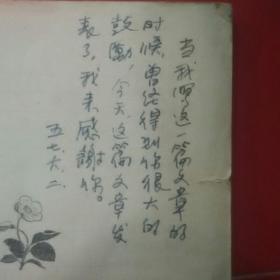 当我写这一篇文章的
时候，曾经得到你很大的
鼓励，今天这篇文章发
表了，我来感谢你。
五七、六、二、